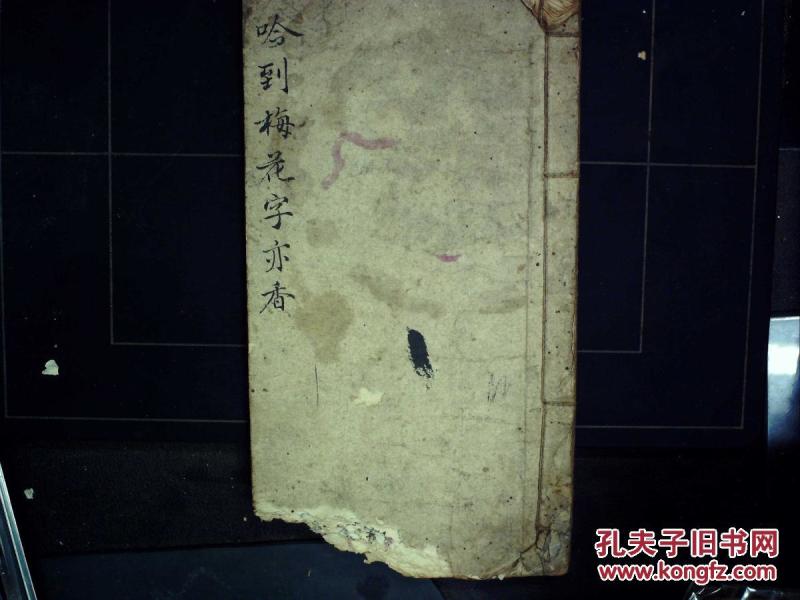 哈到梅花字亦香
孔夫子旧书网
www.kongfz.com